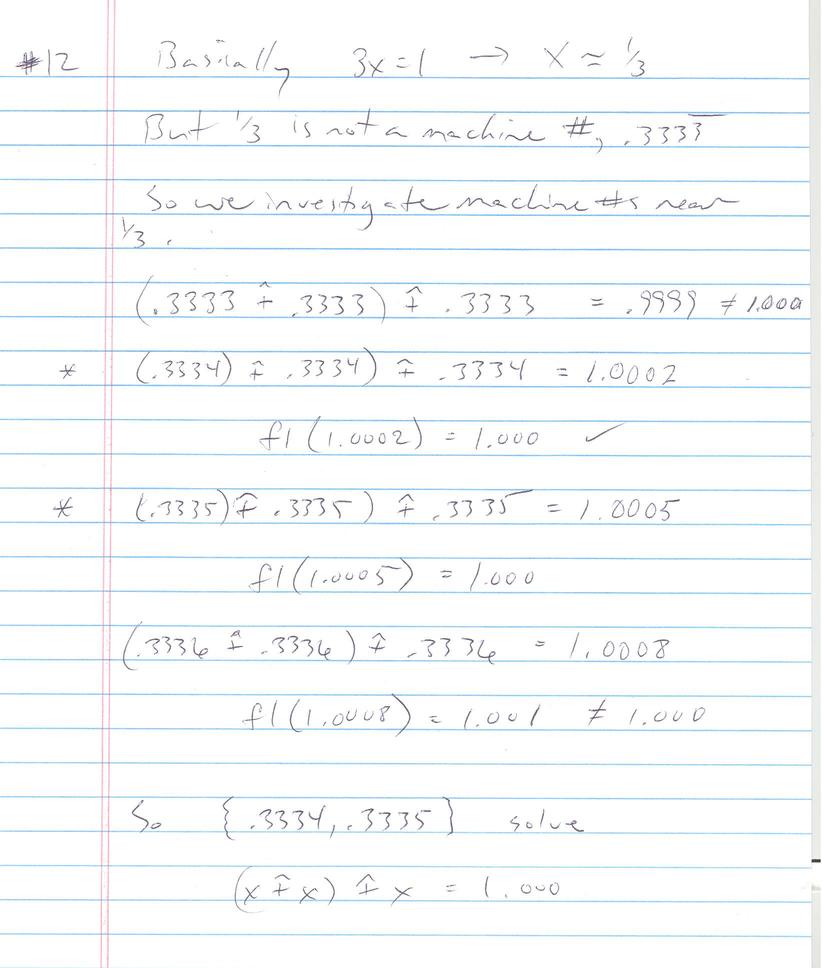 #12 Basically 3x=1 → x ≈ 1/3
But 1/3 is not a machine #, .3333̅
So we investigate machine #s near
1/3.
(.3333 +̂ .3333) +̂ .3333 = .9999 ≠ 1.000
* (.3334) +̂ .3334) +̂ .3334 = 1.0002
fl(1.0002) = 1.000 ✓
* (.3335) +̂ .3335) +̂ .3335 = 1.0005
fl(1.0005) = 1.000
(.3336 +̂ .3336) +̂ .3336 = 1.0008
fl(1.0008) = 1.001 ≠ 1.000
So {.3334, .3335} solve
(x +̂ x) +̂ x = 1.000